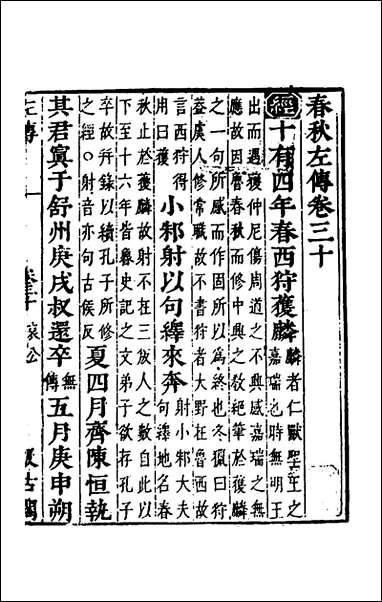 春秋左傳卷三十
經十有四年春西狩獲麟麟者仁獸聖王之
嘉瑞也時無明王
出而遇獲仲尼傷周道之不興感嘉瑞之無
應故因魯春秋而修中興之教絕筆於獲麟
之一句所感而作固所以為終也冬獵曰狩
蓋虞人修常職故不書狩者大野在魯西故
言西狩得
用曰獲
小邾射以句繹來奔射小邾大夫
句繹地名春
秋止於獲麟故射不在三叛人之數自此以
下至十六年皆魯史記之文弟子欲存孔子
卒故并錄以續孔子所修
之經○射音亦句古侯反
夏四月齊陳恒執
其君寘于舒州庚戌叔還卒無
傳
五月庚申朔
左傳 卷三十 哀公 汲古閣